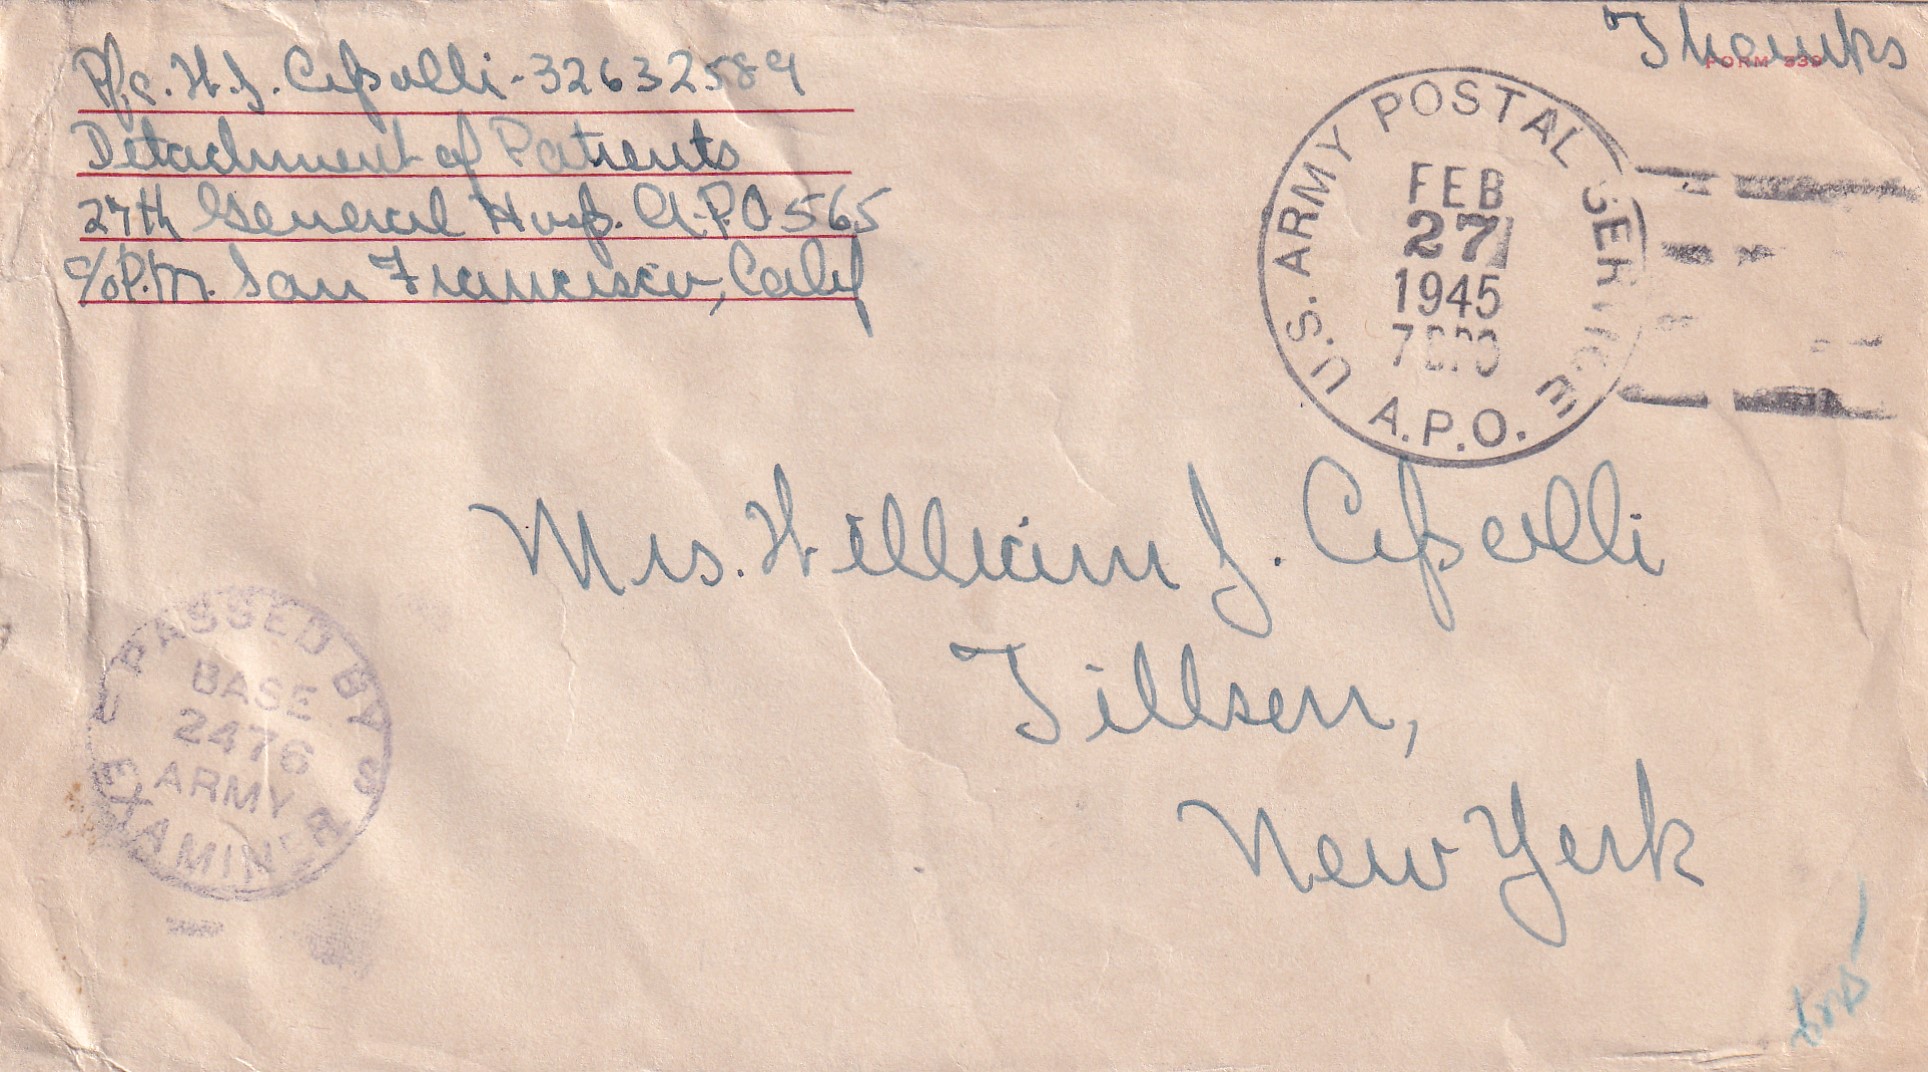 Thanks
FORM 539
Pfc. W. J. Cipolli - 32632589
Detachment of Patients
27th General Hosp. A.P.O 565
c/o P.M. San Francisco, Calif
U.S. ARMY POSTAL SERVICE
FEB
27
1945
A.P.O.
Mrs. William J. Cipolli
Tillson,
New York
PASSED BY
BASE
2476
ARMY
EXAMINER